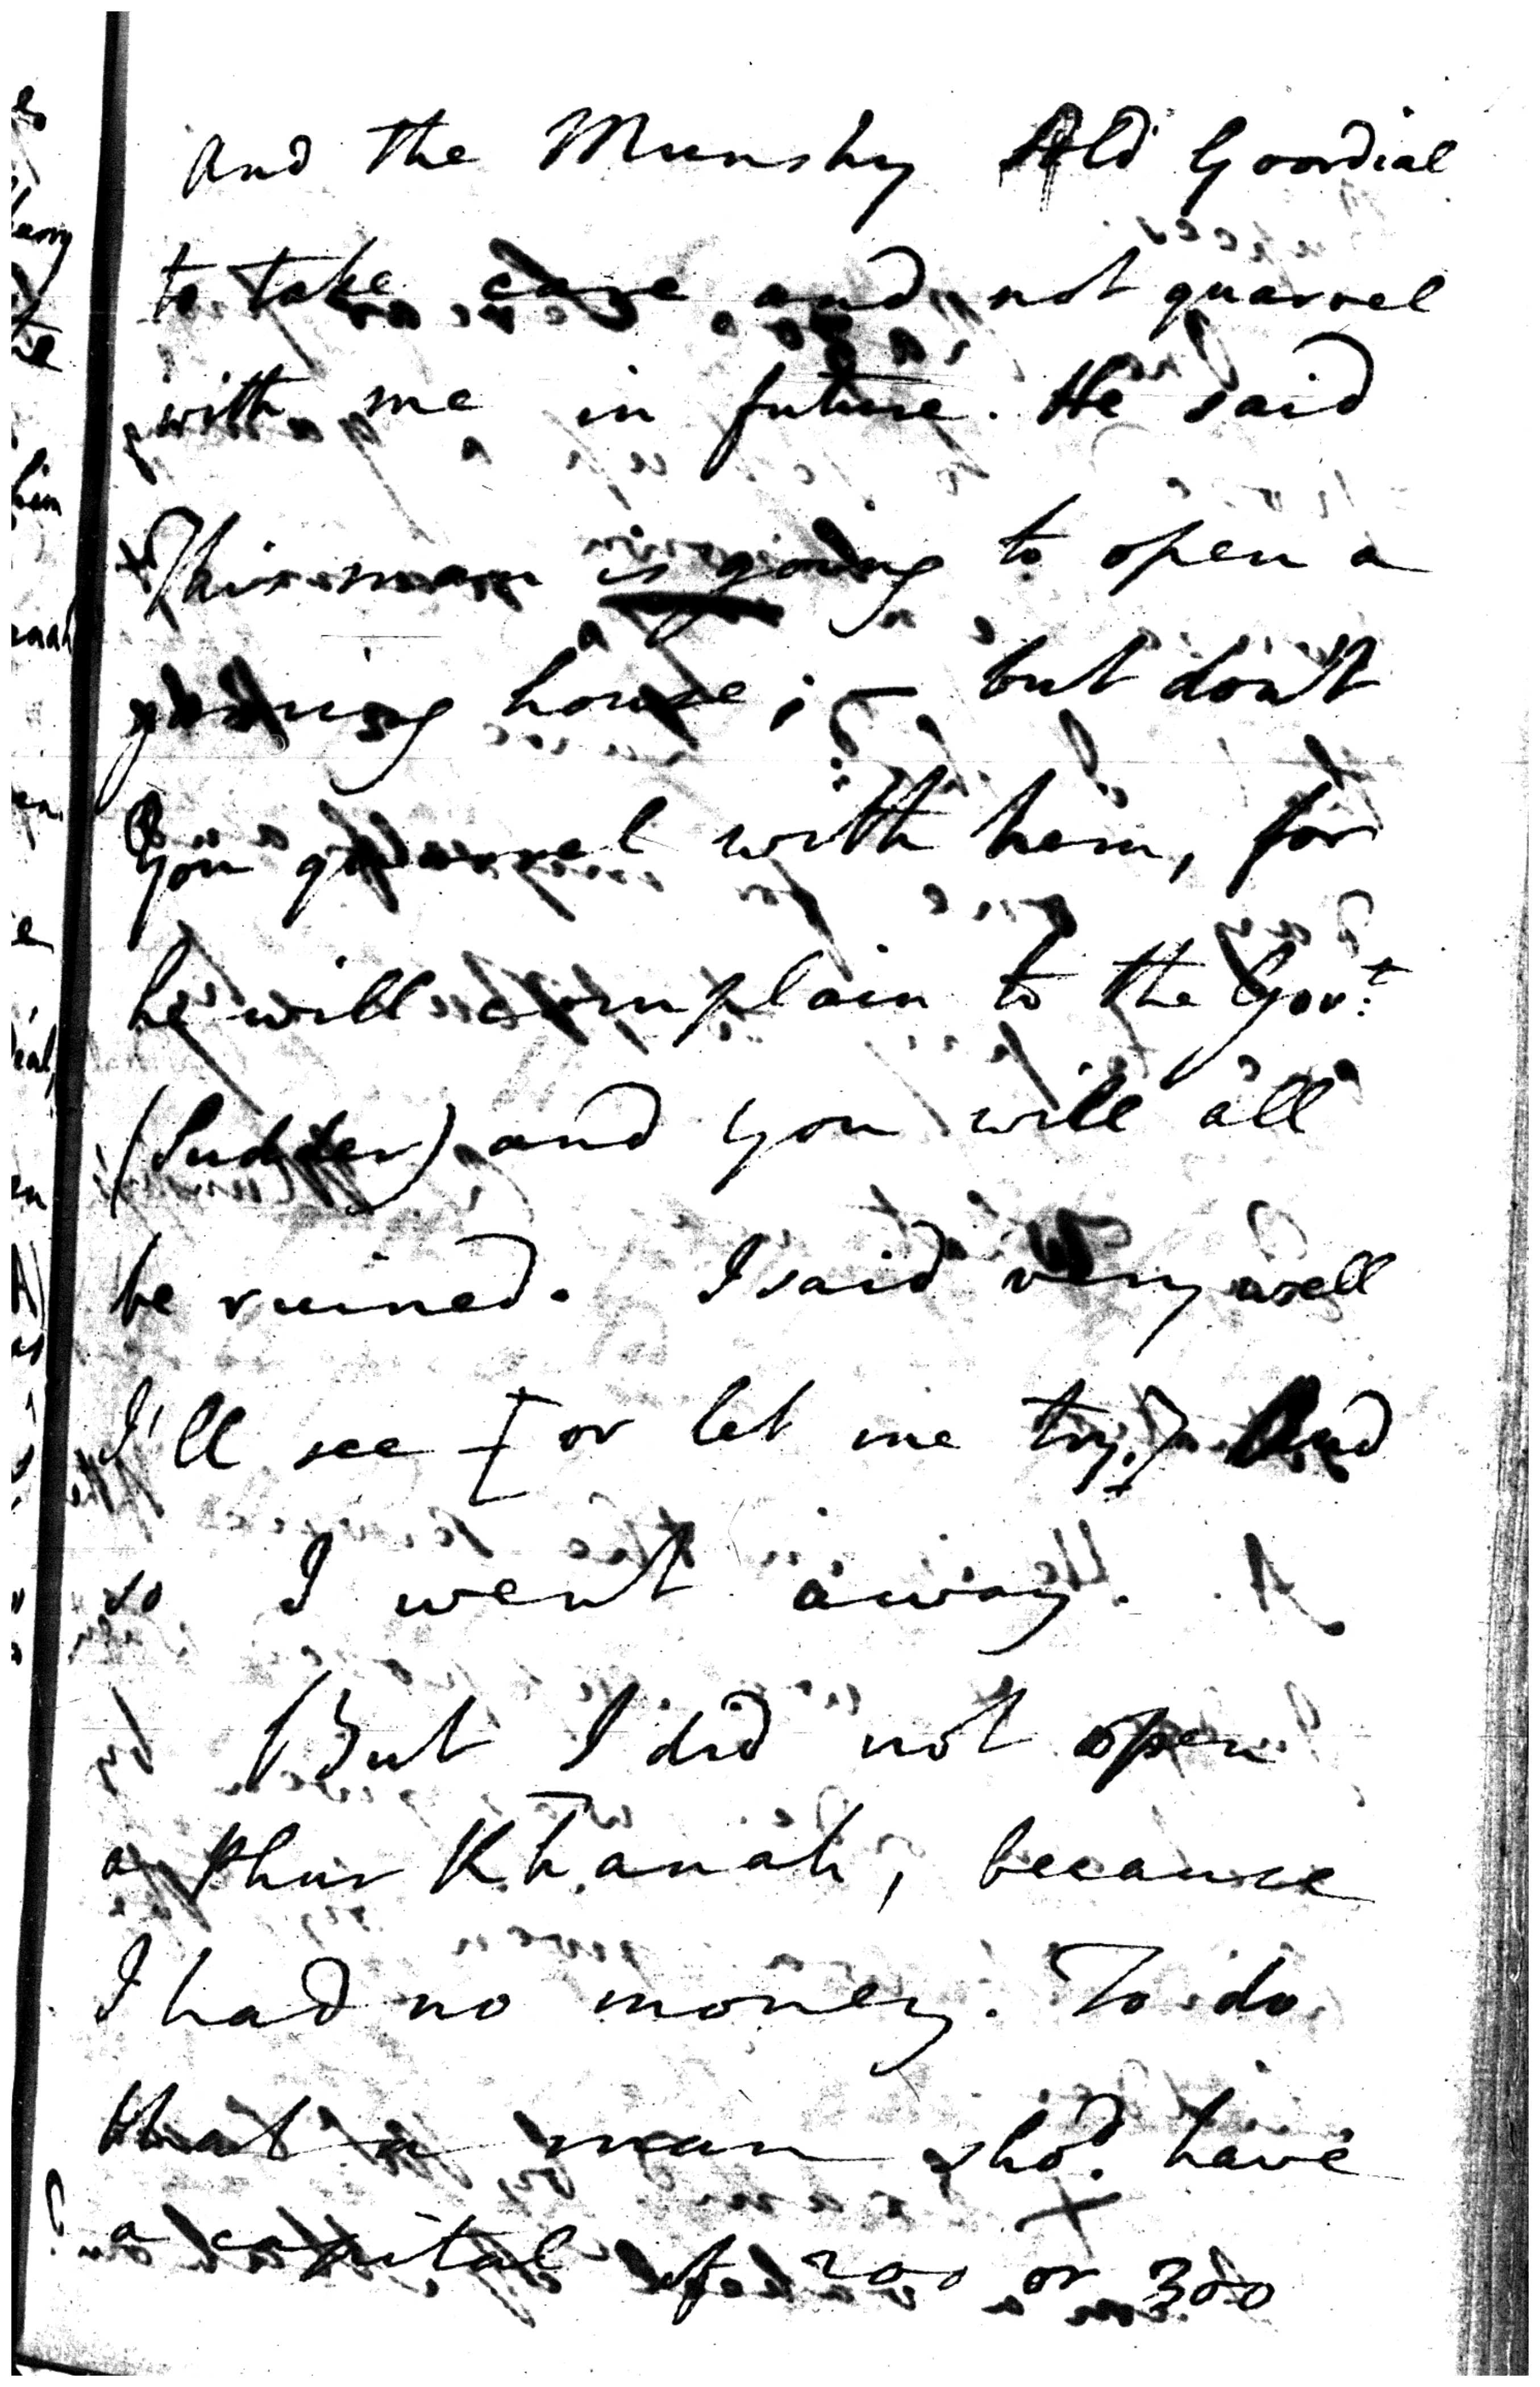 And the Munshy told Goordial
to take care and not quarrel
with me in future. He said
This man is going to open a
house; — but don't
you quarrel with him, for
he will complain to the Govt
(Sudder) and you will all
be ruined. I said very well
I'll see [or let me try.] And
so I went away.
But I did not open
a Phur Khanah, because
I had no money. To do
that a man shod. have
a capital of 200 or 300